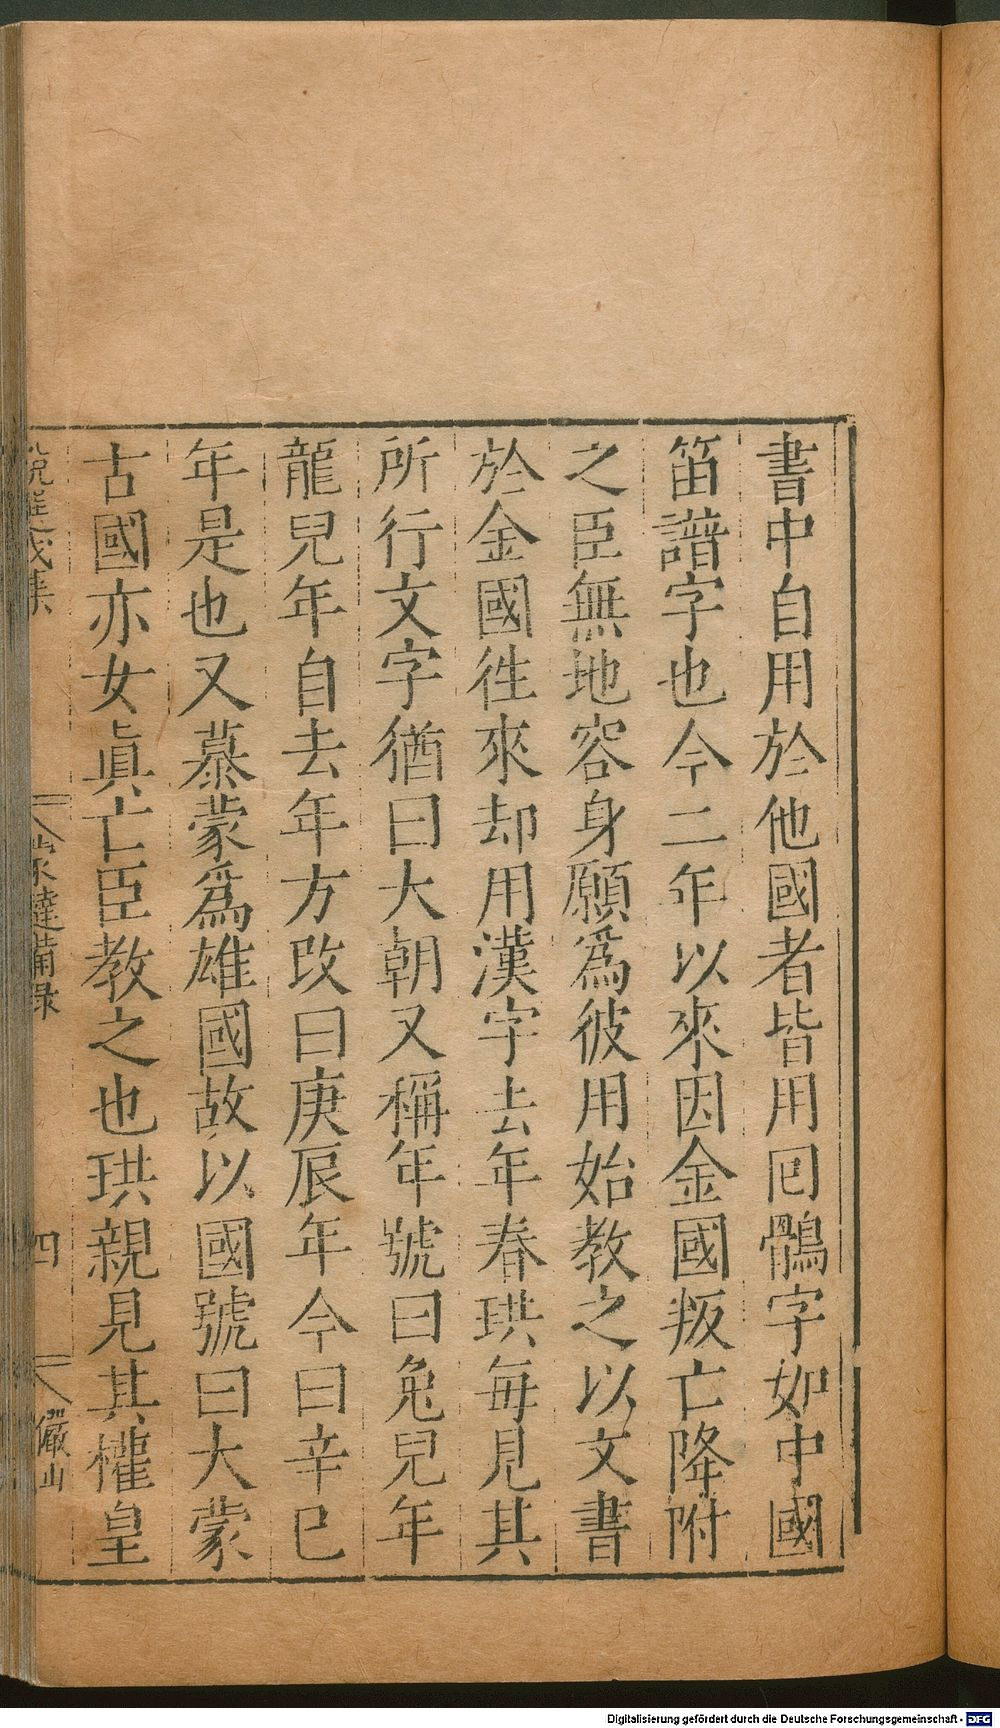 書中自用於他國者皆用囘鶻字如中國
笛譜字也今二年以來因金國叛亡降附
之臣無地容身願爲彼用始教之以文書
於金國徃來却用漢字去年春珙每見其
所行文字猶曰大朝又稱年號曰兔兒年
龍兒年自去年方改曰庚辰年今曰辛巳
年是也又慕蒙爲雄國故以國號曰大蒙
古國亦女眞亡臣教之也珙親見其權皇
四
儼山
Digitalisierung gefördert durch die Deutsche Forschungsgemeinschaft - DFG